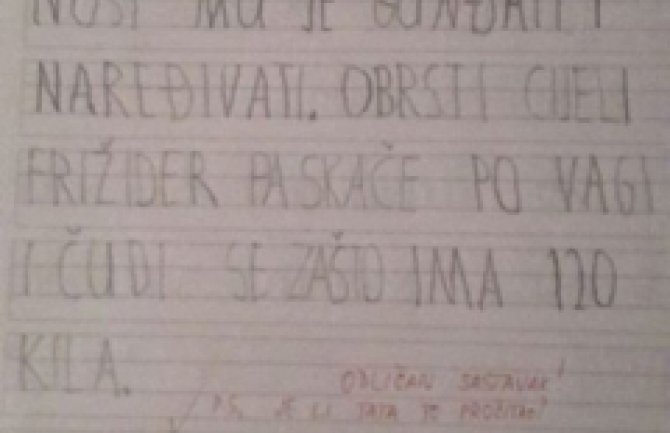 NOSI MU JE GUNĐATI I
NAREĐIVATI. OBRSTI CIJELI
FRIŽIDER PA SKAČE PO VAGI
I ČUDI SE ZAŠTO IMA 120
KILA.
ODLIČAN SASTAVAK!
PS. JE LI TATA TO PROČITAO?